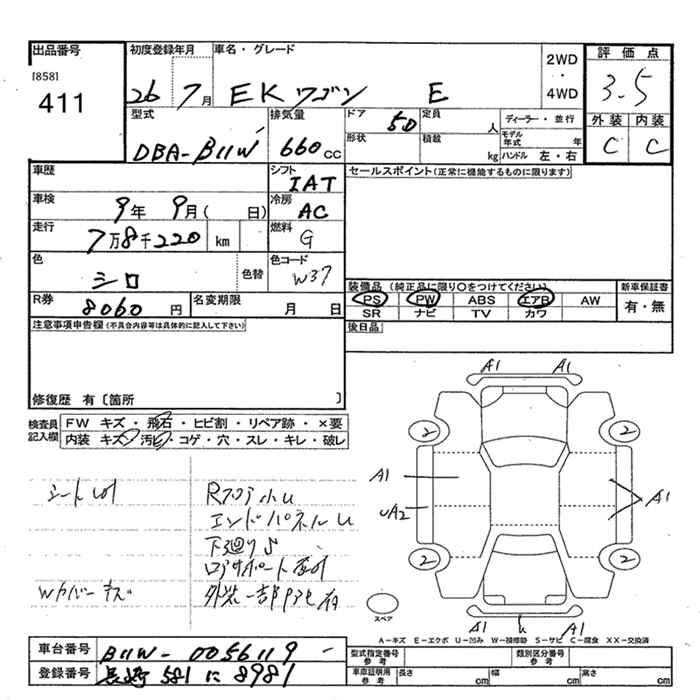 出品番号
[858]
411
初度登録年月
26 7月
車名・グレード
EK ワゴン E
2WD
・
4WD
評価点
3.5
外装 内装
C C
型式
DBA-B11W
排気量
660cc
ドア
5D
形状
定員
人
積載
kg
ディーラー・並行
モデル年式 年
ハンドル 左・右
車歴
車検
9年 9月( 日)
走行
7万8千220 km
色
シロ
色替
R券
8060円
名変期限
月 日
シフト
IAT
冷房
AC
燃料
G
色コード
W37
セールスポイント(正常に機能するものに限ります)
装備品 (純正品に限り○をつけてください)
PS PW ABS エアB AW
SR ナビ TV カワ
新車保証書
有・無
後日品
注意事項申告欄(不具合内容等は具体的に記入して下さい)
修復歴 有〔箇所 〕
検査員記入欄
FW キズ・飛石・ヒビ割・リペア跡・×要
内装 キズ・汚ビ・コゲ・穴・スレ・キレ・破レ
エンドパネルU
下廻りS
Wカバーキズ
A1 A1
2 2
A1
UA2
A1
2 2
A1 U A1
スペア
A-キズ E-エクボ U-凹み W-補修跡 S-サビ C-腐食 XX-交換済
車台番号
B11W-0056119
登録番号
長崎 581 に 8981
型式指定番号
参考
類別区分番号
参考
車庫証明用
参考
長さ cm
幅 cm
高さ cm